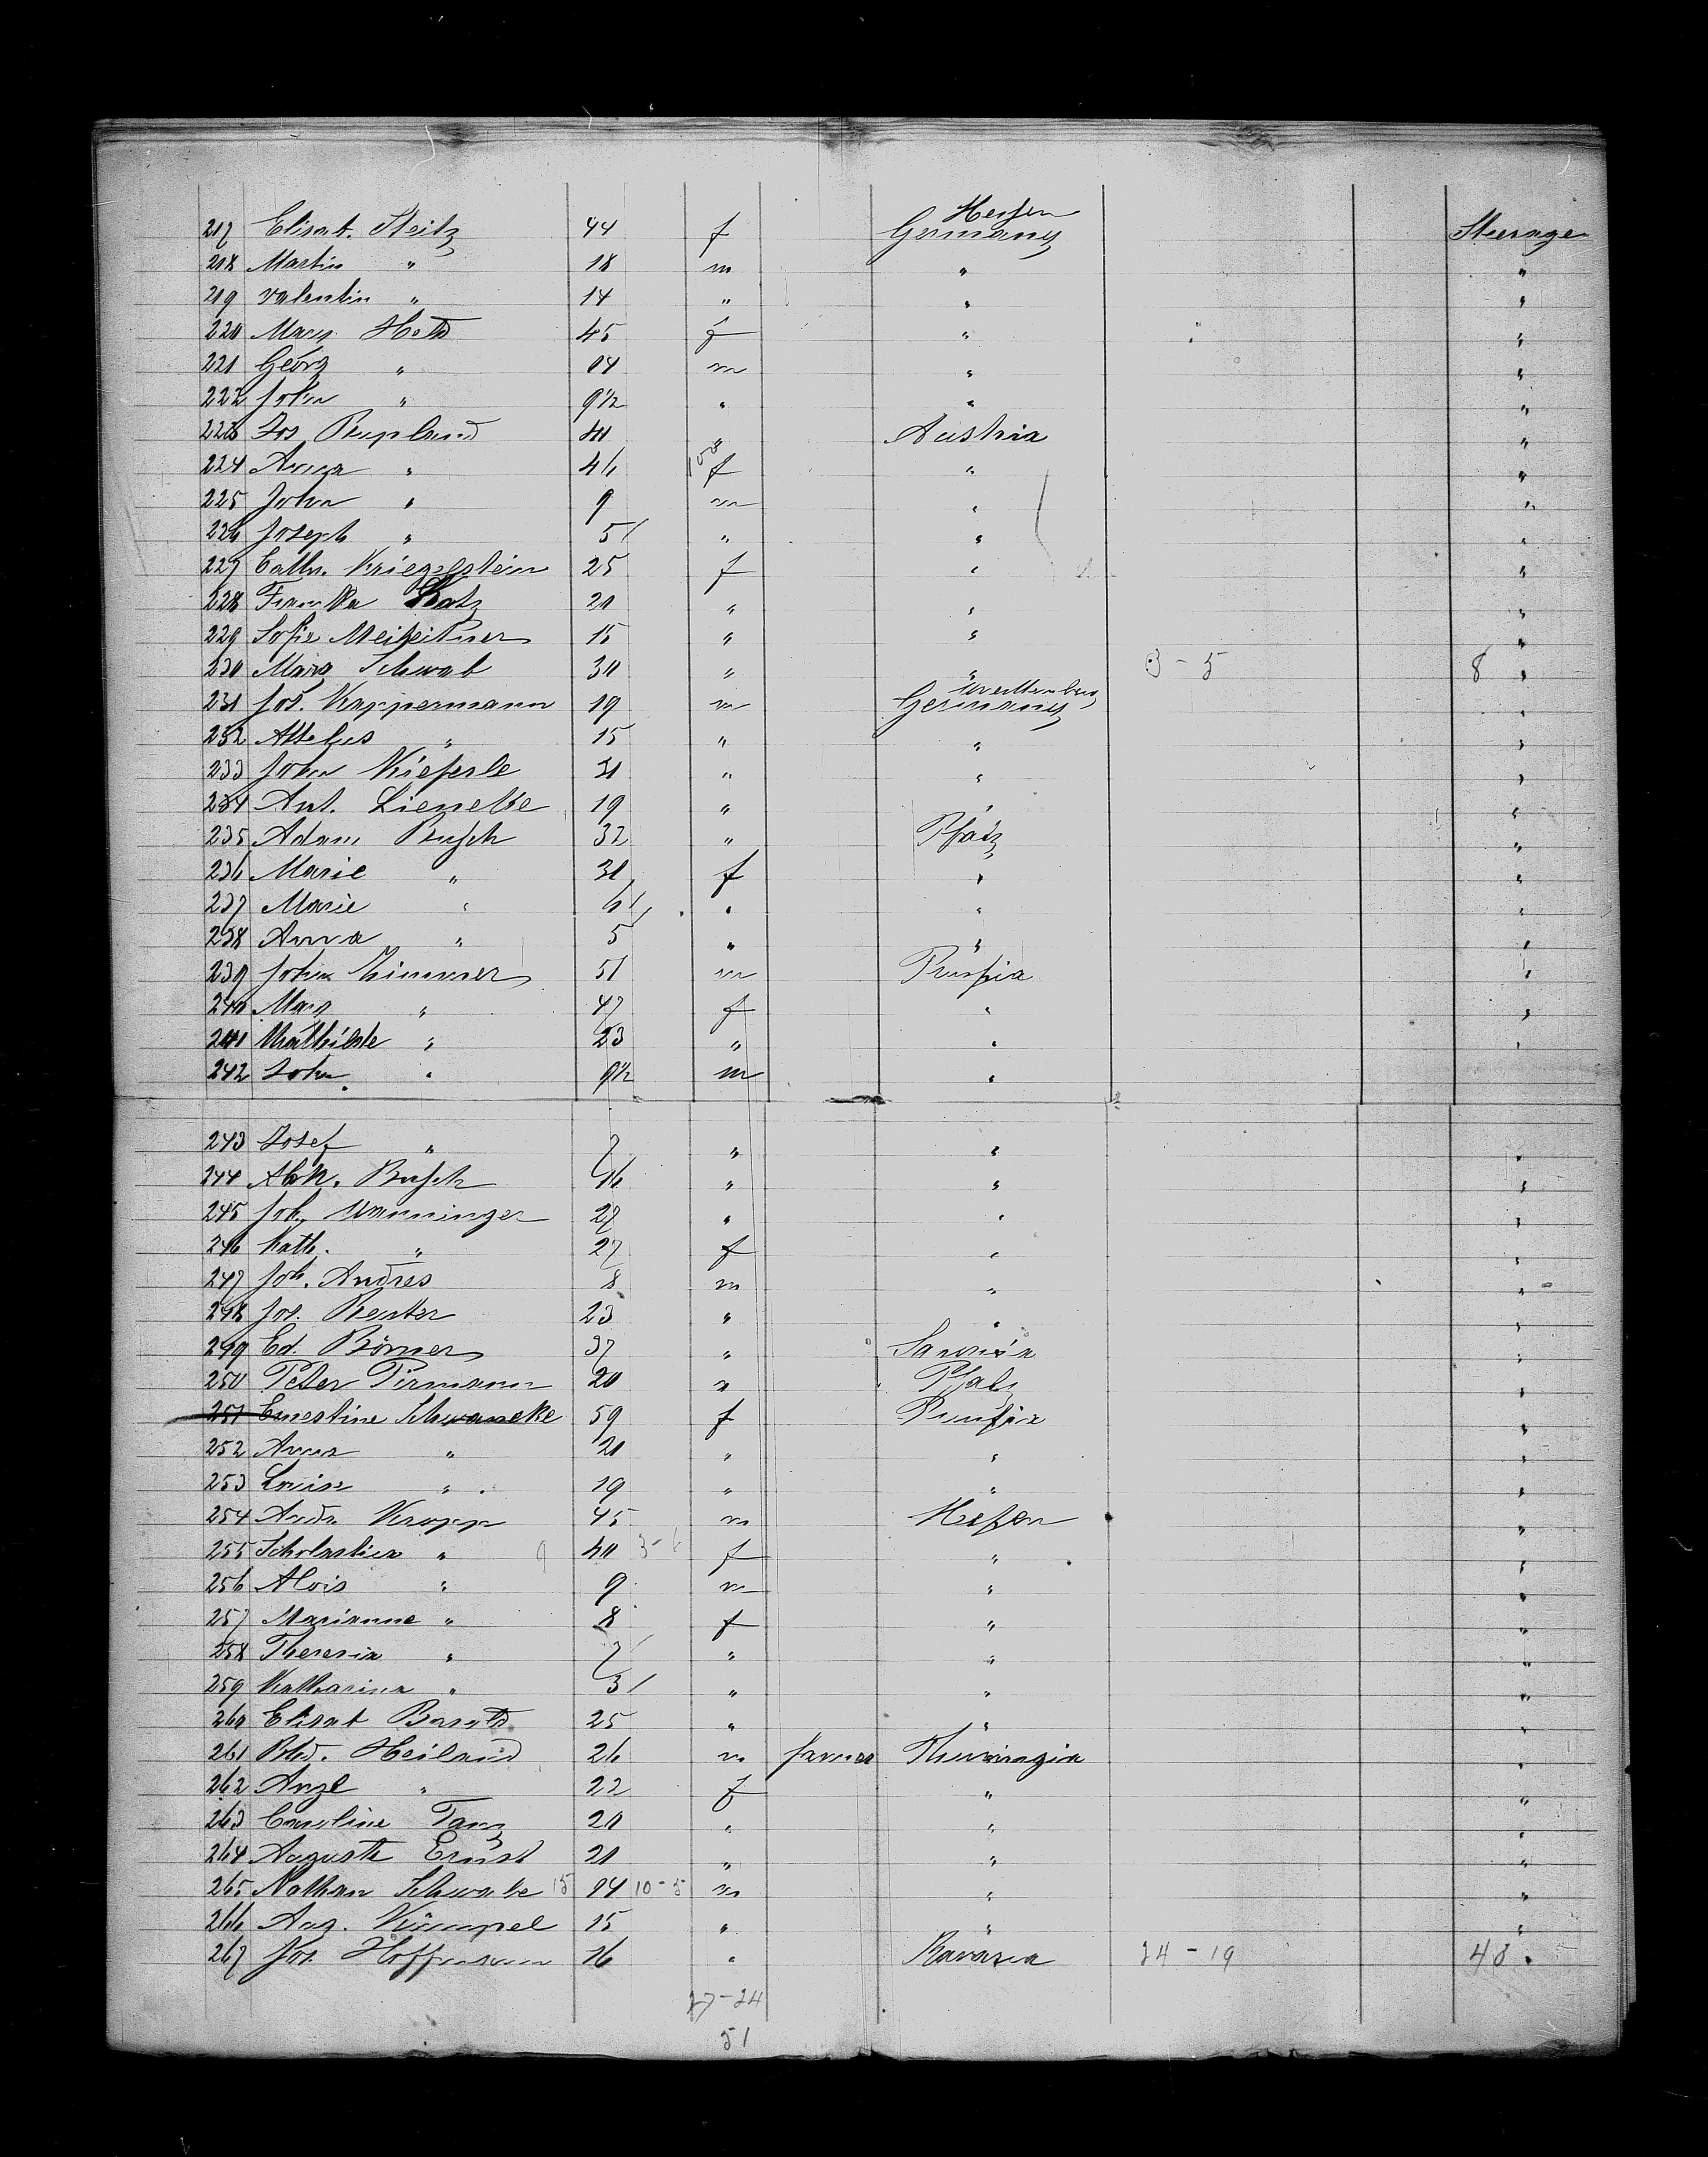 217 Elisab. Steitz 44 f Hessen Germany Steerage
218 Martin " 18 m " "
219 Valentin " 14 " " "
220 Mary Hots 45 f " "
221 Georg " 14 m " "
222 John " 9½ " " "
223 Jos Rupland 40 " Austria "
224 Anna " 46 f " "
225 John " 9 m " "
226 Joseph " 5 " " "
227 Cath. Kriegelstein 25 f " "
228 Franzka Katz 20 " " "
229 Sofie 15 " " "
230 Mary Schwab 30 " " 3 - 5 8 "
231 Jos. Kappermann 19 m Württemberg Germany "
232 15 " " "
233 John Kieferle 31 " " "
234 Ant. Lienekke 19 " " "
235 Adam Busch 32 " Pfalz "
236 Marie " 30 f " "
237 Marie " 6 " " "
238 Anna " 5 " " "
239 John Zimmer 51 m Prussia "
240 Mary " 47 f " "
241 Mathilde " 23 " " "
242 John " 9½ m "
243 Josef " 7 " " "
244 Busch 16 " " "
245 Joh. Wanninger 27 " " "
246 Kath. " 27 f " "
247 Joh. Andres 8 m " "
248 Jos. Reuter 23 " " "
249 Ed. Börner 37 " Saxonia "
250 Peter Pirmann 20 " Pfalz "
251 Ernestine Schwaneke 59 f Prussia "
252 Anna " 20 " " "
253 Louise " 19 " " "
254 Andr. Kropp 45 m Hessen "
255 Scholastica " 9 40 3-6 f " "
256 Alois " 9 m " "
257 Marianne " 8 f " "
258 Theresia " 7 " " "
259 Katharina " 3 " " "
260 Elisab 25 " " "
261 Heiland 26 m farmer Thuringia "
262 " 22 f " "
263 Caroline Tanz 20 " " "
264 Auguste Ernst 20 " " "
265 Nathan Schwabe 15 14 10-5 m " "
266 Aug. Kümpel 15 " " "
267 Jos. Hoffmann 16 " Bavaria 24 - 19 43 "
27-24
51